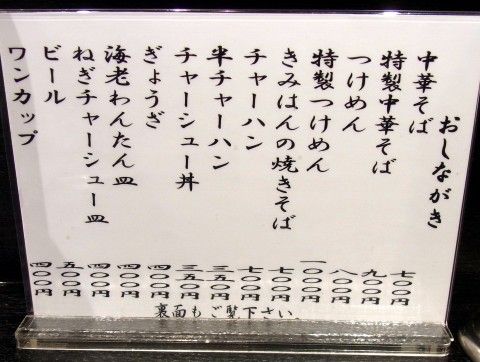 おしながき
中華そば 七〇〇円
特製中華そば 九〇〇円
つけめん 八〇〇円
特製つけめん 一〇〇〇円
きみはんの焼きそば 七〇〇円
チャーハン 七〇〇円
半チャーハン 三五〇円
チャーシュー丼 三五〇円
ぎょうざ 四〇〇円
海老わんたん皿 四〇〇円
ねぎチャーシュー皿 四〇〇円
ビール 五〇〇円
ワンカップ 四〇〇円
裏面もご覧下さい